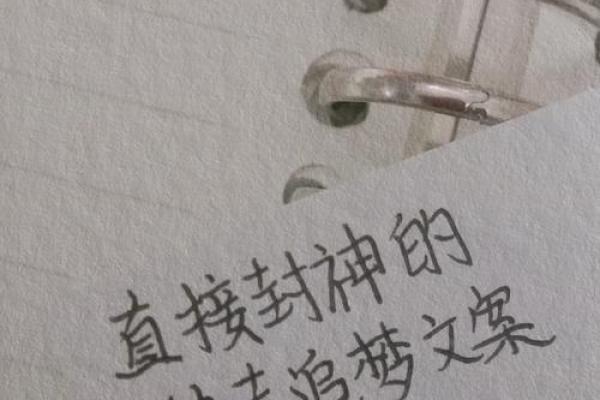 直接封神的
追梦文案